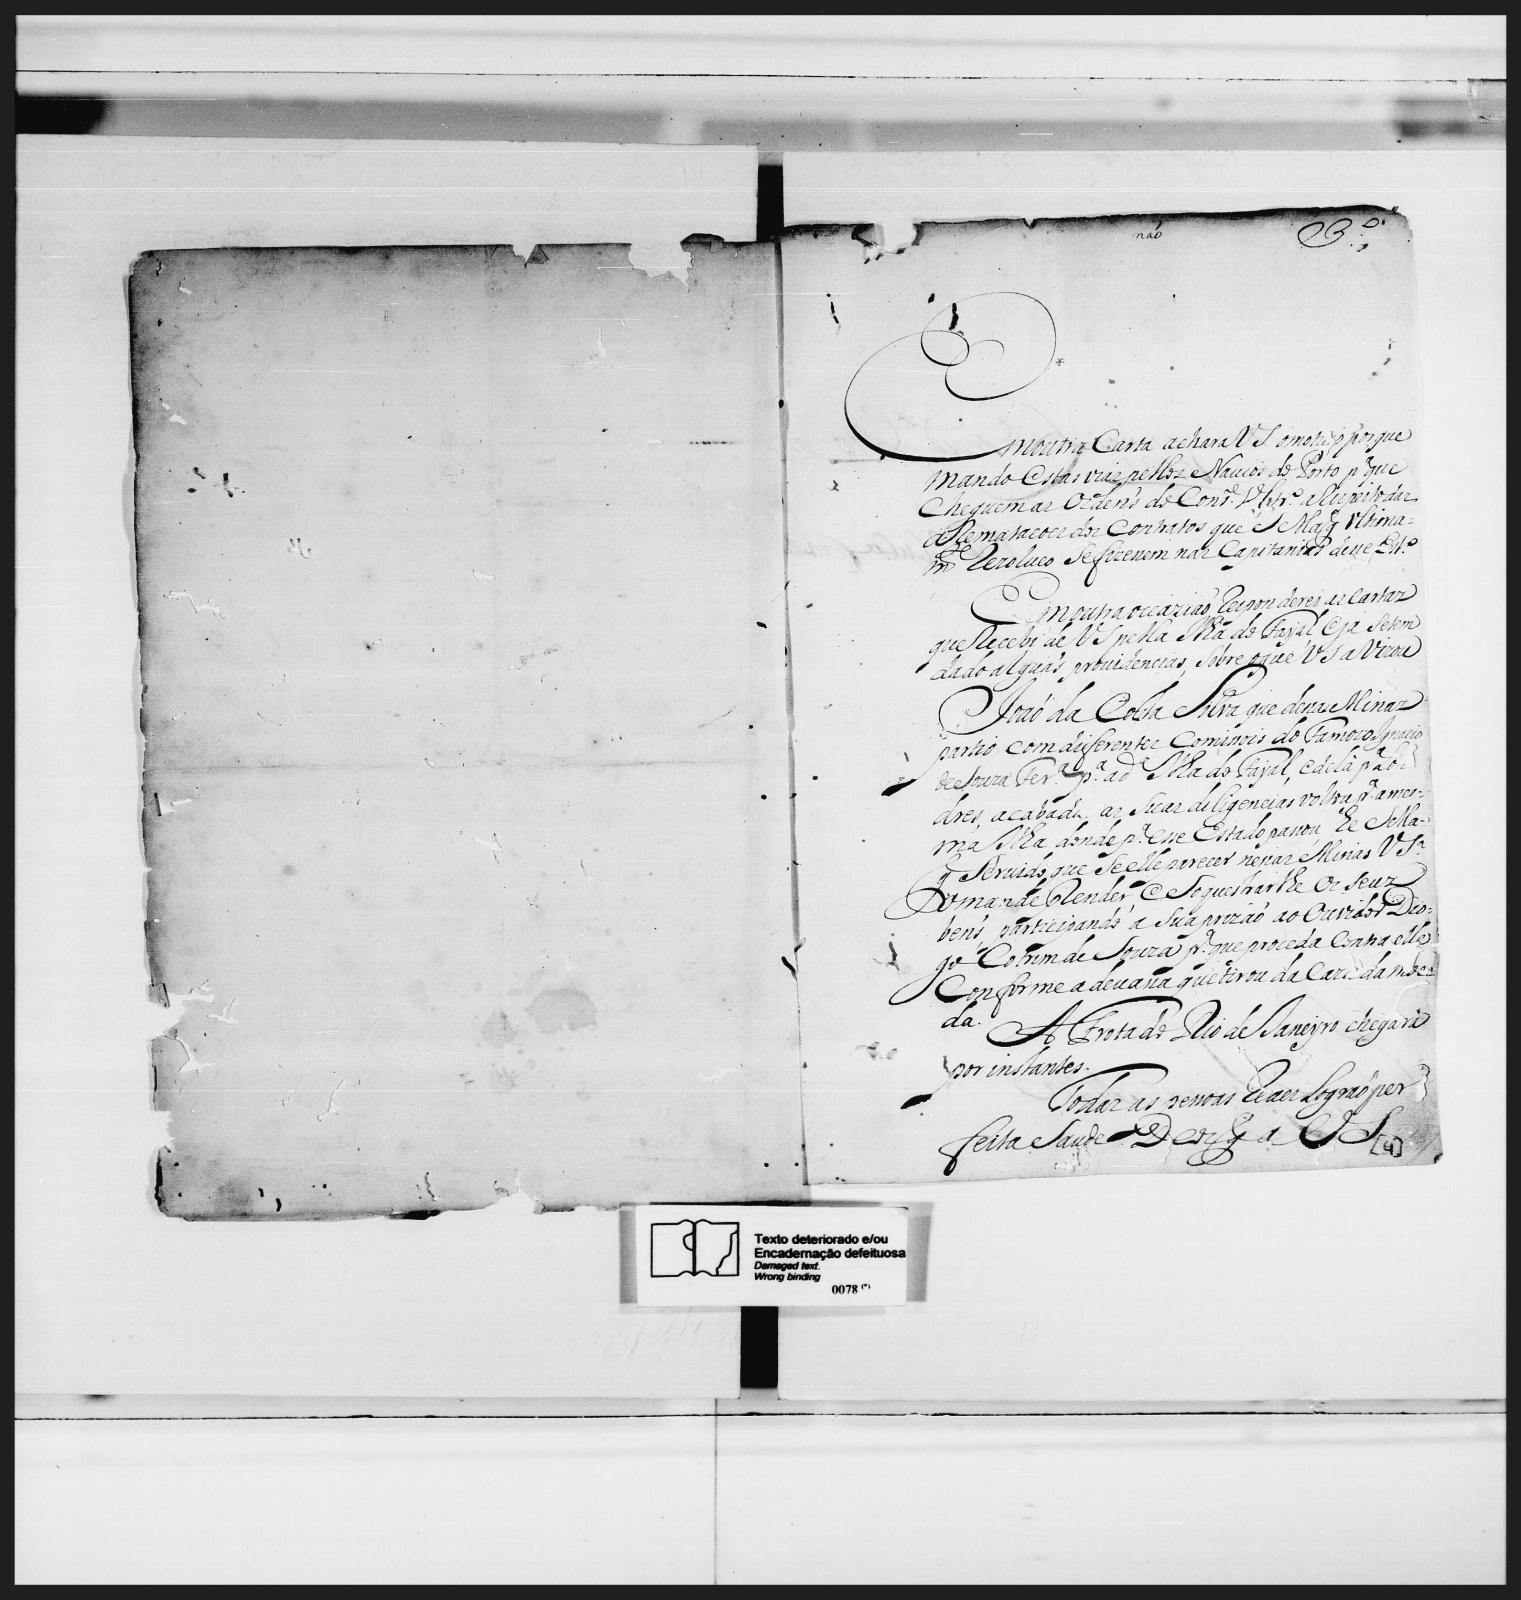 não
Em outra Carta achara VS o motivo porque
mando Estas vias pellos Navios do Porto pª que
cheguem as Ordens do Consº Vltrº a Respeito das
aRematacoes dos Contratos que S Magᵉ Vltima=
mᵗᵉ Rezolueo Se fizecem nas Capitanias desse Estº
Em outra occazião Responderei as Cartas
que Recebi de VS pella Ilha do Fayal e ja Setem
dado alguãs prouidencias, sobre o que VS aVizou
João da Costa Silva que dessas Minas
partio com diferentes Comissois do Famozo Ignacio
de Souza Ferª pª ad Ilha do Fayal, e de lá pª Lon
dres, acabada as Suas diligencias voltou pª a mes=
ma Ilha donde pª esse Estado passou he S Ma=
gᵉ Seruido, que Se elle parecer nessas Minas VSª
o mande Render e Soquestrarlhe os seus
bens, participando a Sua prizão ao Ouvidor Dio=
go Cotrim de Souza pª que proceda Contra elle
Conforme a devaça que tirou da Caza da moe=
da.
A Frota do Rio de Janeyro chegará
por instantes.
Todas as pessoas Reaes Lograõ per
feita Saude. Deos gᵈᵉ a VS
[4]
Texto deteriorado e/ou
Encadernação defeituosa
Damaged text.
Wrong binding
0078 (*)